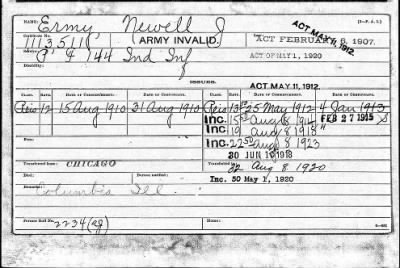 NAME: Ermy, Newell J [3—P. & 1.]
ACT MAY 11, 1912.
Certificate No. 1135110 ARMY INVALID. ACT FEBRUARY 6, 1907.
& 144 Ind Inf ACT OF MAY 1, 1920
Disability:
ISSUES.
ACT MAY 11, 1912.
CLASS. RATE. DATE OF COMMENCEMENT. DATE OF CERTIFICATE. CLASS. RATE. DATE OF COMMENCEMENT. DATE OF CERTIFICATE.
Reis 12 15 Aug 1910 31 Aug 1910 Reis 13 25 May 1912 4 Jan 1913
Inc. 15 Aug 8 1914 FEB 27 1915
Inc. 19 Aug 8 1918 "
Inc. 22 Aug 8 1923
30 JUN 1918
Transferred from: CHICAGO Transferred to:
Aug 8 1920
Columbia Ill. Inc. 50 May 1, 1920
NOTE:
Former Roll No. 2234